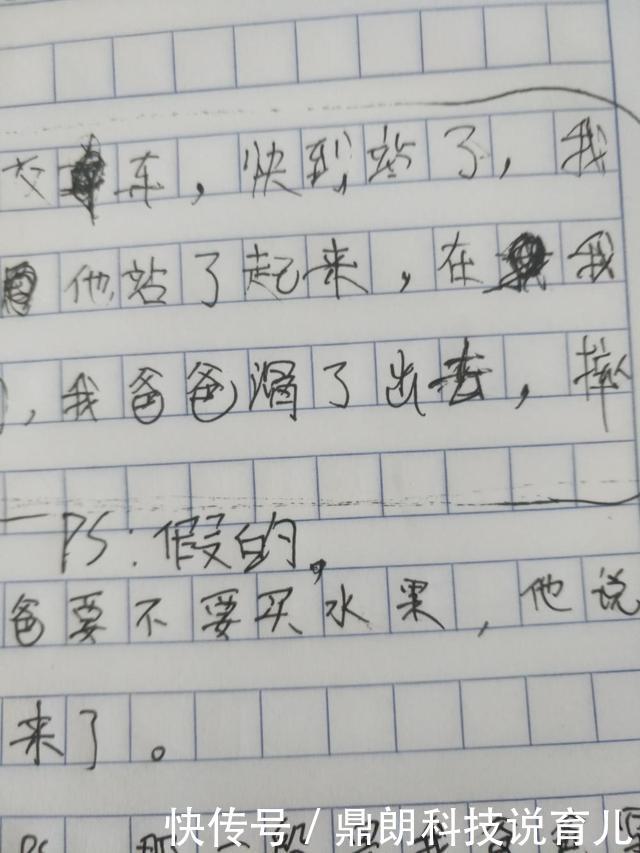 交车，快到站了，我
他站了起来，在我
，我爸爸滑了出去，摔
PS：假的，
爸要不要买水果，他说
来了。
快传号／鼎朗科技说育儿